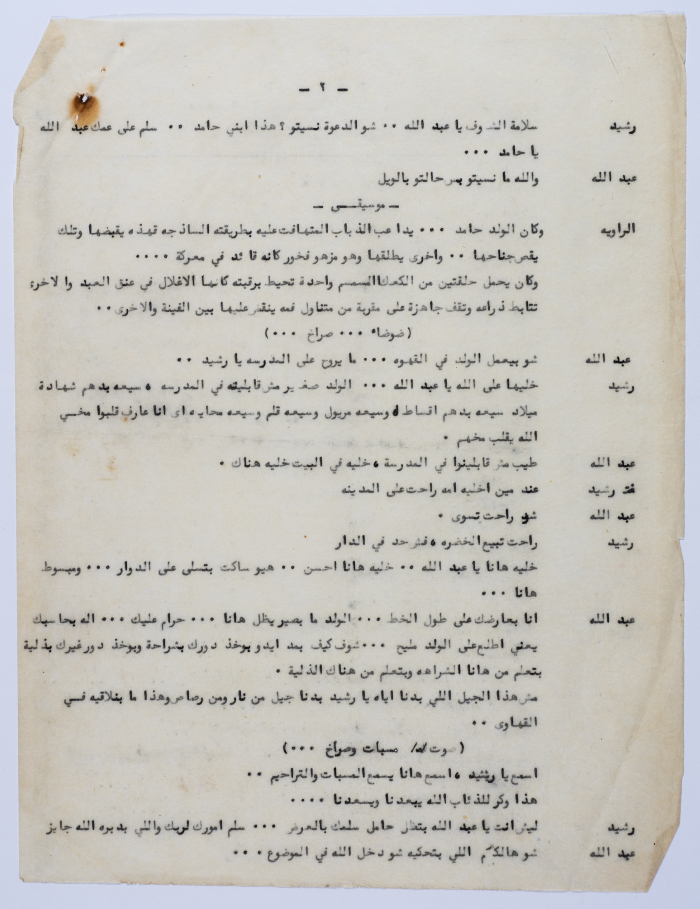 — ٢ —
رشيد سلامة الشوف يا عبد الله ٠٠ شو الدعوة نسيتو ؟ هذا ابني حامد ٠٠ سلم على عمك عبد الله
يا حامد ٠٠٠
عبد الله والله ما نسيتو بس حالتو بالويل
— موسيقــى —
الراويه وكان الولد حامد ٠٠٠ يداعب الذباب المتهافت عليه بطريقته الساذجه فهذه يقبضها وتلك
يقص جناحها ٠٠ واخرى يطلقها وهو مزهو فخور كانه قائد في معركة ٠٠٠٠
وكان يحمل حلقتين من الكعك السمسم واحدة تحيط برقبته كانها الاغلال في عنق العبد والاخرى
تتابط ذراعه وتقف جاهزة على مقربة من متناول فمه ينقض عليها بين الفينة والاخرى ٠٠
( ضوضاء ٠٠٠ صراخ ٠٠٠ )
عبد الله شو بيعمل الولد في القهوه ٠٠٠ ما يروح على المدرسه يا رشيد ٠٠
رشيد خليها على الله يا عبد الله ٠٠٠ الولد صغير مش قابليته في المدرسه ، سيعه بدهم شهادة
ميلاد سيعه بدهم اقساط ، وسيعه مريول وسيعه قلم وسيعه محايه اى انا عارف قلبوا مخسي
الله يقلب مخهم ٠
عبد الله طيب مش قابلينوا في المدرسة ، خليه في البيت خليه هناك ٠
رشيد عند مين اخليه امه راحت على المدينه
عبد الله شو راحت تسوى ٠
رشيد راحت تبيع الخضره ، فش حد في الدار
خليه هانا يا عبد الله ٠٠ خليه هانا احسن ٠٠ هيو ساكت بتسلى على الدوار ٠٠٠ ومبسوط
هانا ٠٠٠
عبد الله انا بعارضك على طول الخط ٠٠٠ الولد ما بصير يظل هانا ٠٠٠ حرام عليك ٠٠٠ اله بحاسبك
يعني اطلع على الولد مليح ٠٠٠ شوف كيف بمد ايدو بوخذ دورك بشراحة وبوخذ دور غيرك بذلية
بتعلم من هانا الشراهه وبتعلم من هناك الذلية ٠
مش هذا الجيل اللي بدنا اياه يا رشيد بدنا جيل من نار ومن رصاص وهذا ما بنلاقيه فسي
القهاوى ٠٠
( صوت مسبات وصراخ ٠٠٠ )
اسمع يا رشيد ، اسمع هانا يسمع المسبات والتراحيم ٠٠
هذا وكر للذئاب الله يبعدنا ويسعدنا ٠٠٠٠
رشيد ليش انت يا عبد الله بتظل حامل سلمك بالعرض ٠٠٠ سلم امورك لربك واللي بدبره الله جايز
عبد الله شو هالكلام اللي بتحكيه شو دخل الله في الموضوع ٠٠٠